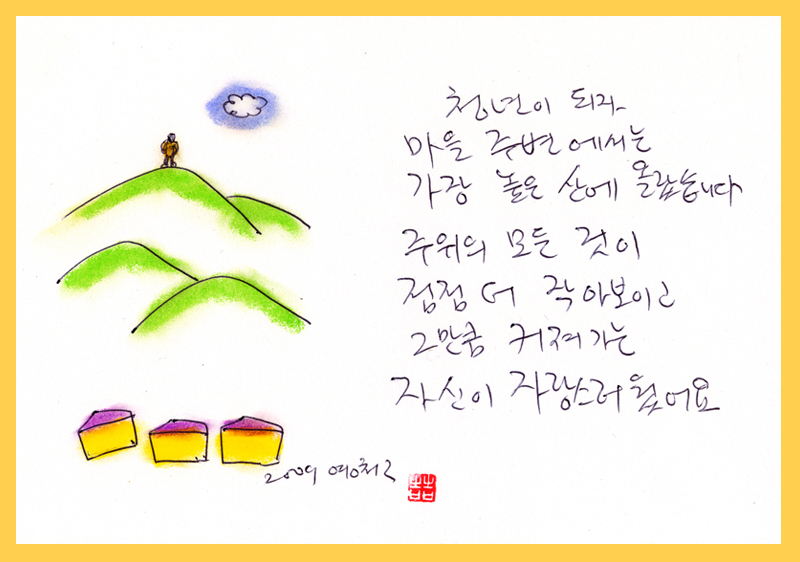 청년이 되자
마을 주변에서는
가장 높은 산에 올랐습니다
주위의 모든 것이
점점 더 작아보이고
그만큼 커져가는
자신이 자랑스러웠어요
2009